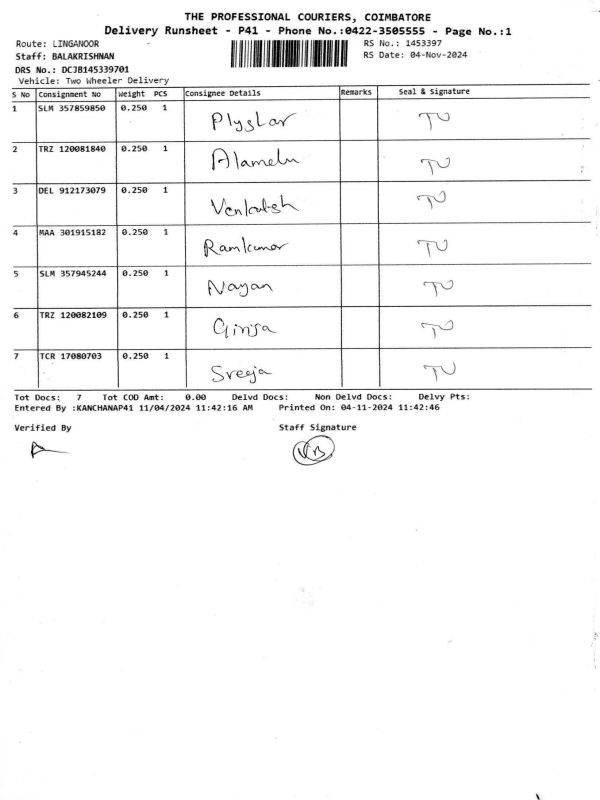 THE PROFESSIONAL COURIERS, COIMBATORE
Delivery Runsheet - P41 - Phone No.:0422-3505555 - Page No.:1
Route: LINGANOOR RS No.: 1453397
Staff: BALAKRISHNAN RS Date: 04-Nov-2024
DRS No.: DCJB145339701
Vehicle: Two Wheeler Delivery
S No Consignment No Weight PCS Consignee Details Remarks Seal & Signature
1 SLM 357859850 0.250 1 Plystar TJ
2 TRZ 120081840 0.250 1 Alamelu TJ
3 DEL 912173079 0.250 1 Venkatesh TJ
4 MAA 301915182 0.250 1 Ramkumar TJ
5 SLM 357945244 0.250 1 Nayan TJ
6 TRZ 120082109 0.250 1 Girija TJ
7 TCR 17080703 0.250 1 Sreeja TJ
Tot Docs: 7 Tot COD Amt: 0.00 Delvd Docs: Non Delvd Docs: Delvy Pts:
Entered By :KANCHANAP41 11/04/2024 11:42:16 AM Printed On: 04-11-2024 11:42:46
Verified By Staff Signature